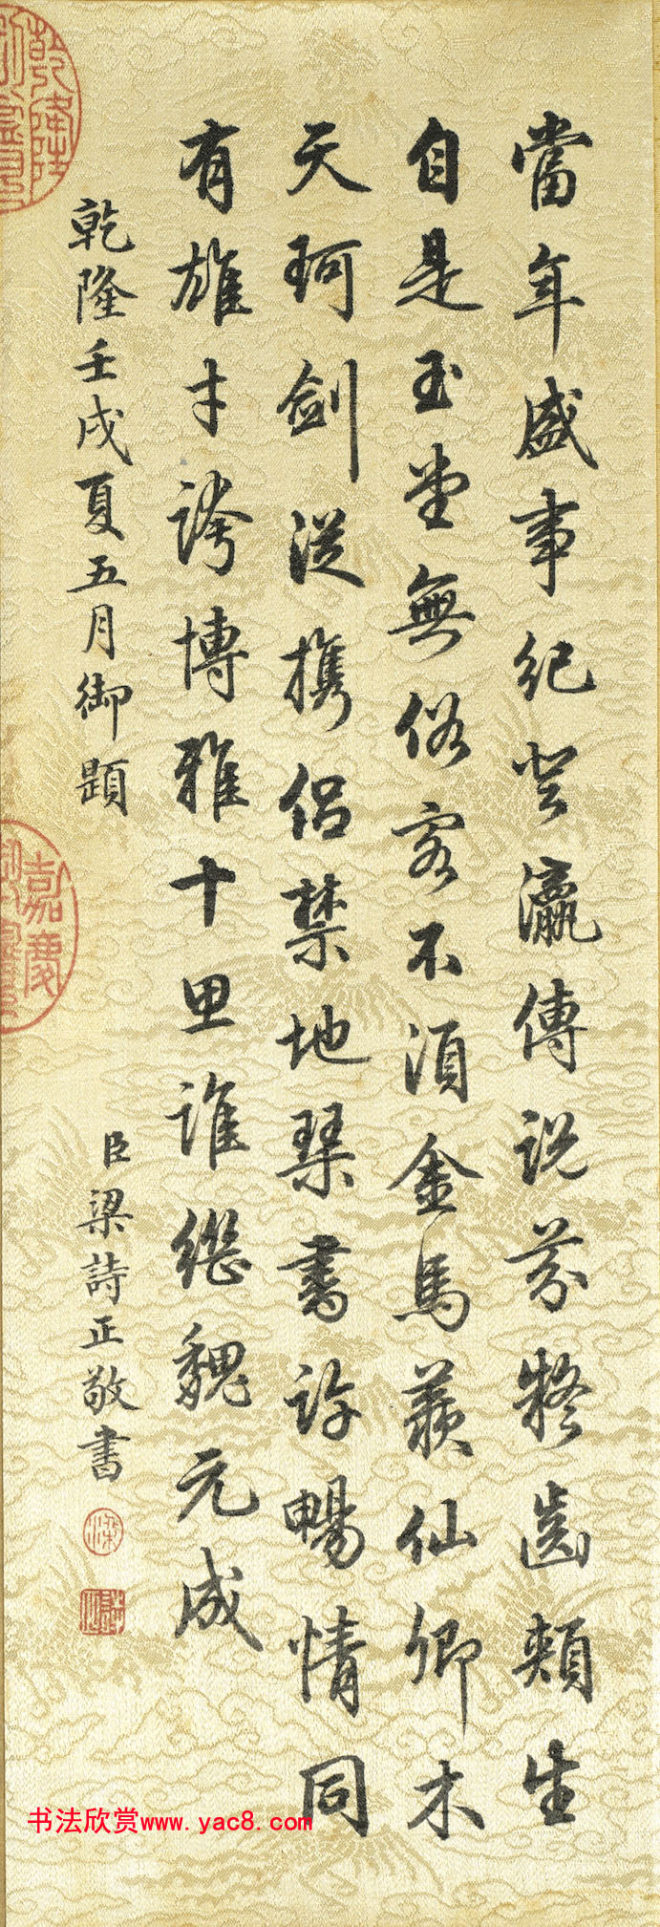 當年盛事紀登瀛傳說芬移齒頰生
自是玉堂無俗客不須金馬羨仙卿木
天珂劍從携侶禁地琹書許暢情同
有雄才誇博雅十思誰繼魏元成
乾隆壬戌夏五月御題
臣梁詩正敬書
乾隆
嘉慶
书法欣赏www.yac8.com